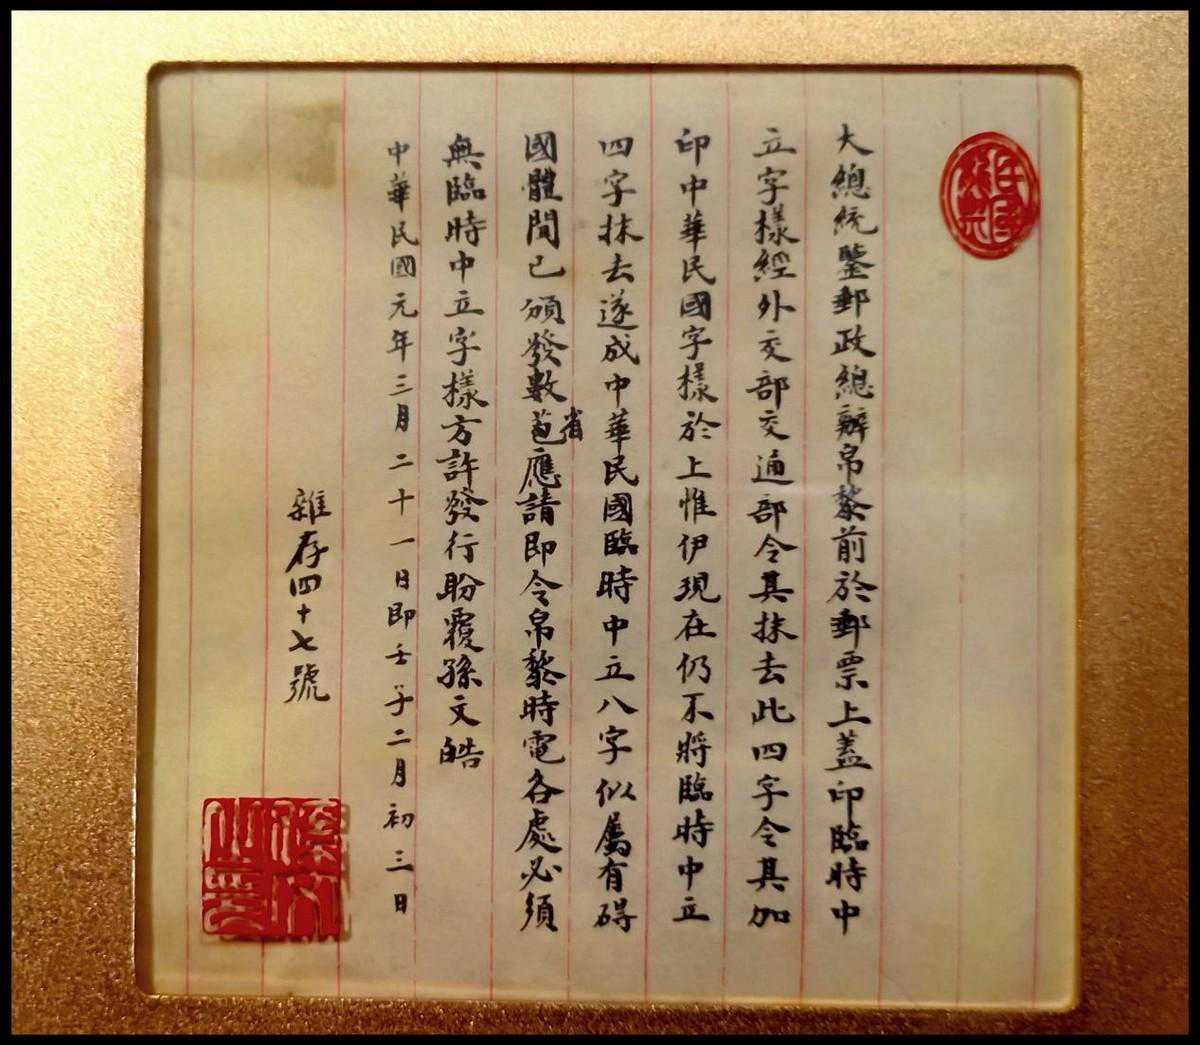 大總統鑒郵政總辦帛黎前於郵票上蓋印臨時中
立字樣經外交部交通部令其抹去此四字令其加
印中華民國字樣於上惟伊現在仍不將臨時中立
四字抹去遂成中華民國臨時中立八字似屬有碍
國體間已頒發數省應請即令帛黎時電各處必須
無臨時中立字樣方許發行盼覆孫文皓
中華民國元年三月二十一日即壬子二月初三日
雜存四十七號
孫文之印